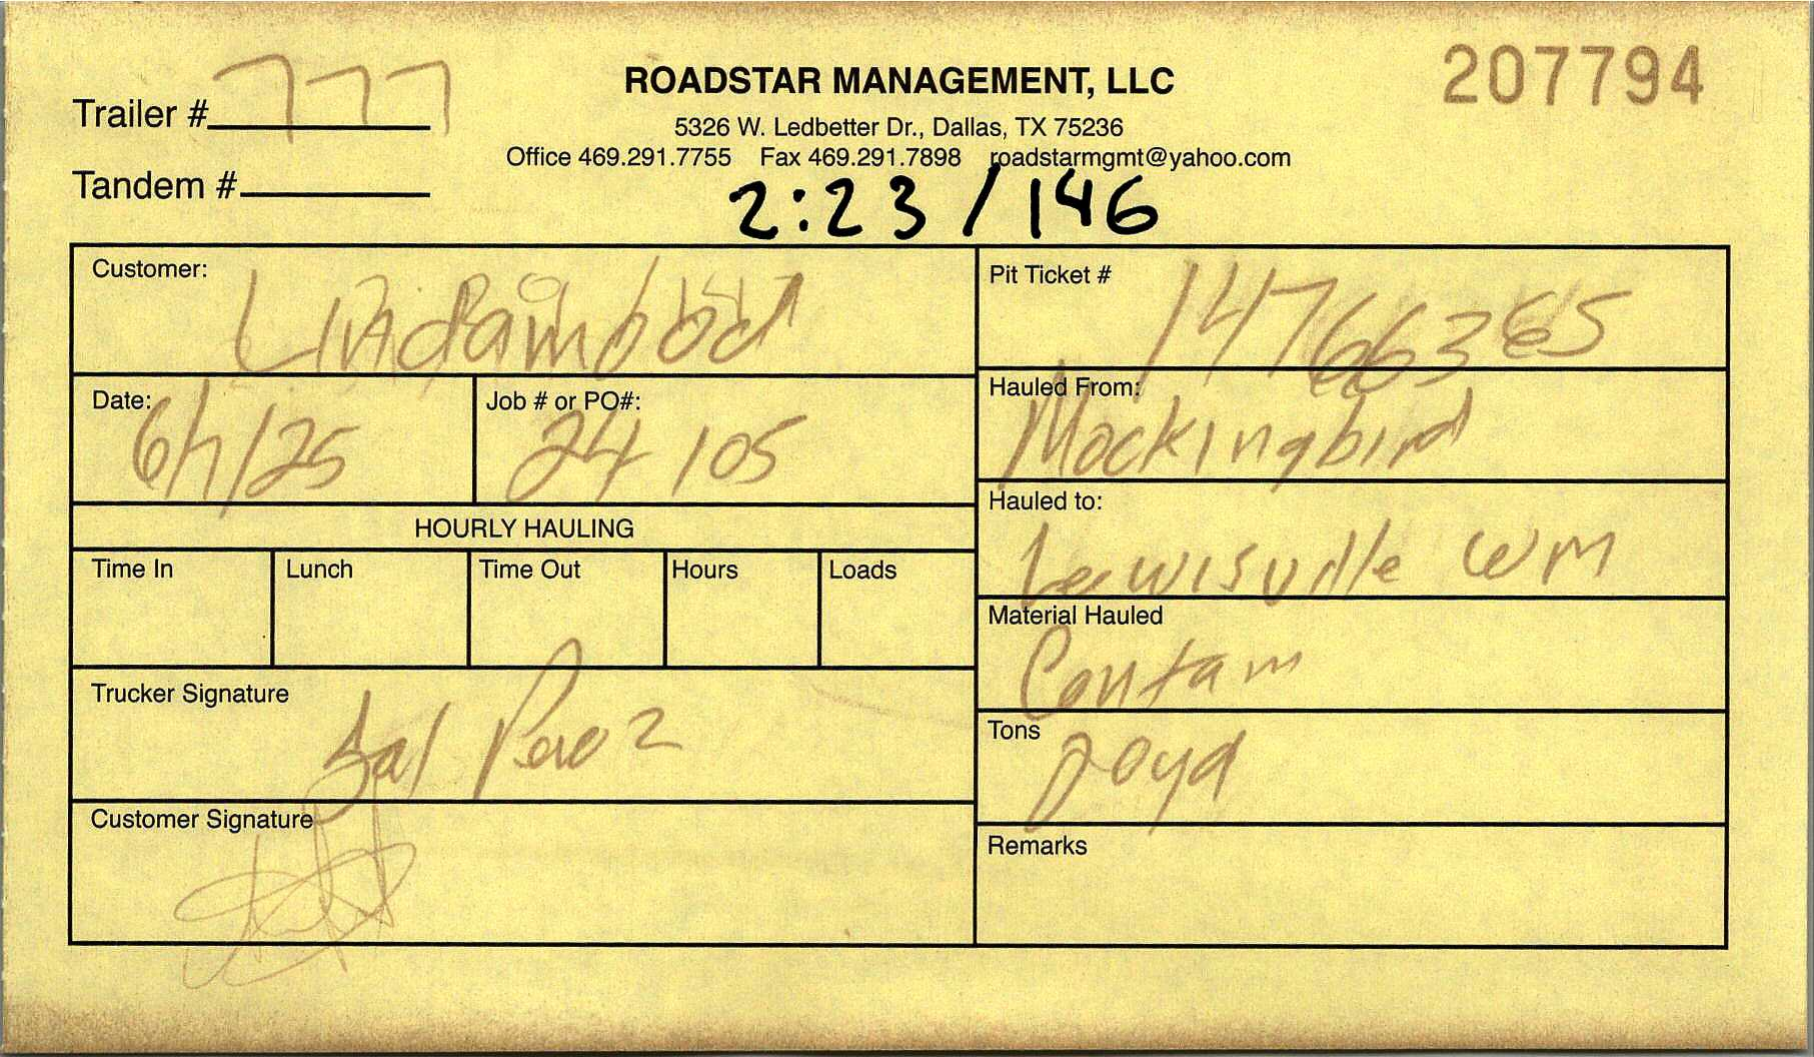 Trailer # 777
ROADSTAR MANAGEMENT, LLC
207794
5326 W. Ledbetter Dr., Dallas, TX 75236
Office 469.291.7755 Fax 469.291.7898 roadstarmgmt@yahoo.com
Tandem #
2:23 / 146
Customer:
Lindamood
Pit Ticket #
14766365
Date:
6/7/25
Job # or PO#:
24105
Hauled From:
Mockingbird
HOURLY HAULING
Hauled to:
Lewisville WM
Time In
Lunch
Time Out
Hours
Loads
Material Hauled
Contam
Trucker Signature
Sal Perez
Tons
20yd
Customer Signature
Remarks